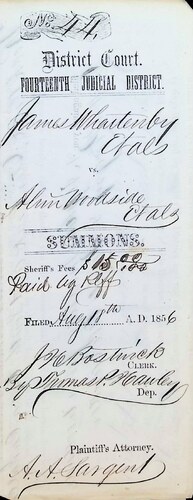 No. 44
District Court.
FOURTEENTH JUDICIAL DISTRICT.
James Whartenby
et als
vs.
Alun Woodside
et als
SUMMONS.
Sheriff's Fees $15.00
Paid by Plff
FILED, Aug 11th A. D. 1856
J H Bostwick
CLERK.
By Thomas P. Hawley
Dep.
Plaintiff's Attorney.
A. A. Sargent